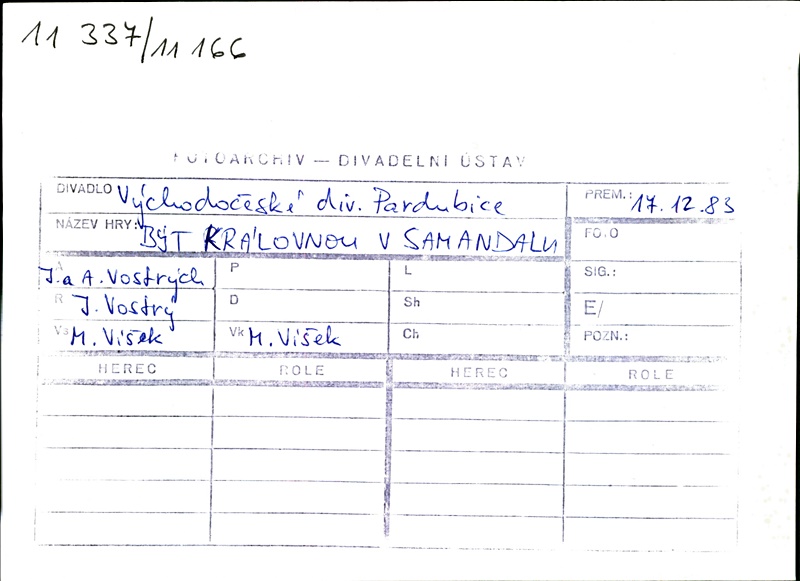 11 337/11 166
FOTOARCHIV — DIVADELNÍ ÚSTAV
DIVADLO Východočeské div. Pardubice PREM.: 17.12.83
NÁZEV HRY: BÝT KRÁLOVNOU V SAMANDALU FOTO
A J. a A. Vostrých P L SIG.:
R J. Vostrý D Sh E/
Vs M. Višek Vk M. Višek Ch POZN.:
HEREC ROLE HEREC ROLE